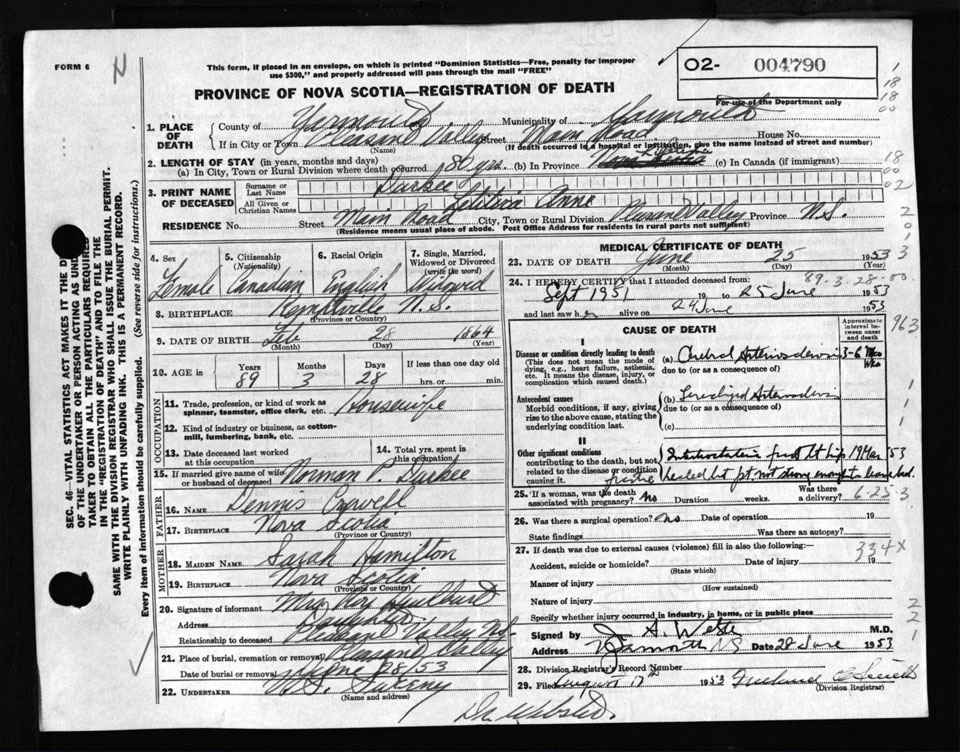 FORM 6
N
This form, if placed in an envelope, on which is printed "Dominion Statistics—Free, penalty for improper use $300," and properly addressed will pass through the mail "FREE"
02- 004790
For use of the Department only
PROVINCE OF NOVA SCOTIA—REGISTRATION OF DEATH
1. PLACE OF DEATH
County of Yarmouth Municipality of Yarmouth
If in City or Town Pleasant Valley Street Main Road House No.
(Name) (If death occurred in a hospital or institution, give the name instead of street and number)
2. LENGTH OF STAY (in years, months and days)
(a) In City, Town or Rural Division where death occurred 80 yrs. (b) In Province (c) In Canada (if immigrant)
3. PRINT NAME OF DECEASED
Surname or Last Name Durkee
All Given or Christian Names Letitia Anne
RESIDENCE No. Street Main Road City, Town or Rural Division Pleasant Valley Province N.S.
(Residence means usual place of abode. Post Office Address for residents in rural parts not sufficient)
4. Sex Female
5. Citizenship (Nationality) Canadian
6. Racial Origin English
7. Single, Married, Widowed or Divorced (write the word) Widowed
8. BIRTHPLACE Kemptville N.S.
(Province or Country)
9. DATE OF BIRTH Feb 28 1864
(Month) (Day) (Year)
10. AGE in Years Months Days If less than one day
89 3 28 hrs. or min.
OCCUPATION
11. Trade, profession, or kind of work as spinner, teamster, office clerk, etc. Housewife
12. Kind of industry or business, as cotton-mill, lumbering, bank, etc.
13. Date deceased last worked at this occupation
14. Total yrs. spent in this occupation
15. If married give name of wife or husband of deceased Norman Durkee
FATHER
16. NAME Dennis Crowell
17. BIRTHPLACE Nova Scotia
(Province or Country)
MOTHER
18. MAIDEN NAME Sarah Hamilton
19. BIRTHPLACE Nova Scotia
(Province or Country)
20. Signature of informant Mrs Hurlburt
Address Pleasant Valley N.S.
Relationship to deceased Daughter
21. Place of burial, cremation or removal Pleasant Valley
Date of burial or removal June 28/53
22. UNDERTAKER Sweeny
MEDICAL CERTIFICATE OF DEATH
23. DATE OF DEATH June 25 1953
(Month) (Day) (Year)
24. I HEREBY CERTIFY that I attended deceased from:
89.3.28.00
Sept 1951 19 to 25 June 1953
and last saw her alive on 24 June 1953
CAUSE OF DEATH
Approximate interval between onset and death
I
Disease or condition directly leading to death
(This does not mean the mode of dying, e.g., heart failure, asthenia, etc. It means the disease, injury, or complication which caused death.)
(a) Cerebral Arteriosclerosis 3-6
due to (or as a consequence of)
Antecedent causes
Morbid conditions, if any, giving rise to the above cause, stating the underlying condition last.
(b) Generalized Arteriosclerosis
due to (or as a consequence of)
(c)
II
Other significant conditions
contributing to the death, but not related to the disease or condition causing it.
Intertrochanteric fract Lt hip 19 Mar 53
healed but pt not strong enough to leave bed.
25. If a woman, was the death associated with pregnancy? No Duration weeks. Was there a delivery?
6-25-3
26. Was there a surgical operation? No Date of operation 19
State findings Was there an autopsy?
27. If death was due to external causes (violence) fill in also the following:—
334X
Accident, suicide or homicide? Date of injury 19
(State which)
Manner of injury (How sustained)
Nature of injury
Specify whether injury occurred in industry, in home, or in public place
Signed by A. Webster M.D.
Address Yarmouth NS Date 28 June 1953
28. Division Registrar's Record Number
29. Filed August 17th 1953
(Division Registrar)
Dr. Webster.
SEC. 46—VITAL STATISTICS ACT MAKES IT THE D
OF THE UNDERTAKER OR PERSON ACTING AS UND
TAKER TO OBTAIN ALL THE PARTICULARS REQUIRED
IN THE "REGISTRATION OF DEATH" AND TO FILE THE
SAME WITH THE DIVISION REGISTRAR WHO SHALL ISSUE THE BURIAL PERMIT.
WRITE PLAINLY WITH UNFADING INK. THIS IS A PERMANENT RECORD.
Every item of information should be carefully supplied. (See reverse side for instructions.)
963